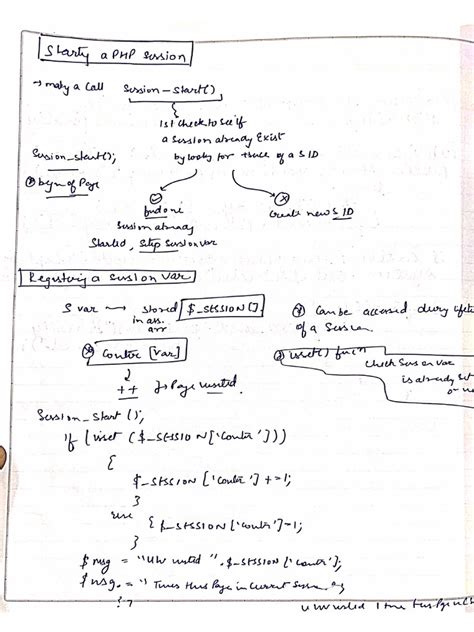 Starty a PHP Session
→ makg a Call Session_start()
1st Check to See if
a Session already Exist
by lookg for trace of a SID
Session_start();
begin of Page
find one
Create new SID
Session already
Started, Setup Session var
Registering a session var
S var → stored $_SESSION[].
in ass.
arr
Can be accessed durig lifeti
of a Session.
Counter [var]
isset() func^n
Check Session var
is already set
or no
++ → Page visited.
Session_start();
if (isset ($_SESSION['Counter']))
{
$_SESSION['Counter'] +=1;
}
else { $_SESSION['Counter']=1;
}
$msg = "U W visited ". $_SESSION['Counter'];
$msg. = " Times this Page in Current Session
?>
U W visited 1 time this page in C